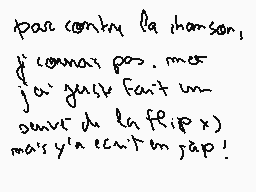 par contre la chanson,
j'connais pas. mer
j'ai juste fait un
dessin de la flip x)
mais y'a ecrit en jap!